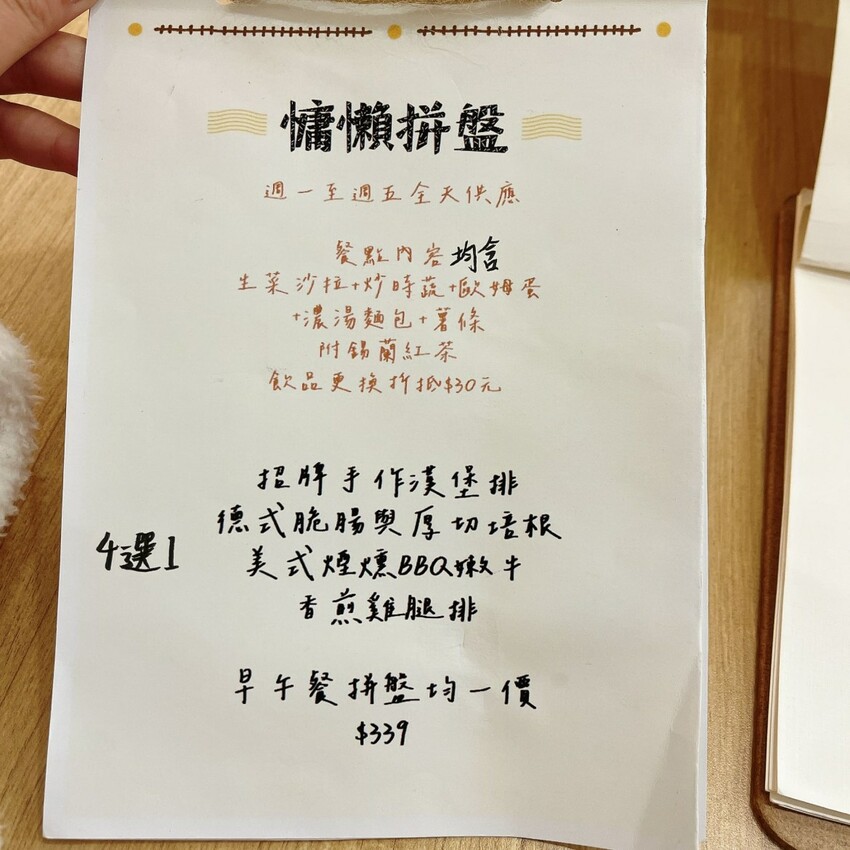 慵懶拼盤
週一至週五全天供應
餐點內容均含
生菜沙拉+炒時蔬+歐姆蛋
+濃湯麵包+薯條
附錫蘭紅茶
飲品更換折抵$30元
招牌手作漢堡排
德式脆腸與厚切培根
4選1
美式煙燻BBQ嫩牛
香煎雞腿排
早午餐拼盤均一價
$339